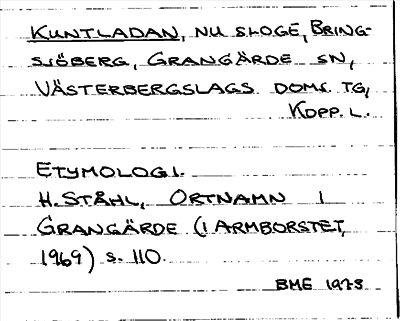 KUNTLADAN, NU SLOGE, BRING-
SJÖBERG, GRANGÄRDE SN,
VÄSTERBERGSLAGS DOMS. TG,
KOPP. L.
ETYMOLOGI.
H. STÅHL, ORTNAMN I
GRANGÄRDE (I ARMBORSTET,
1969) S. 110.
BME 1978